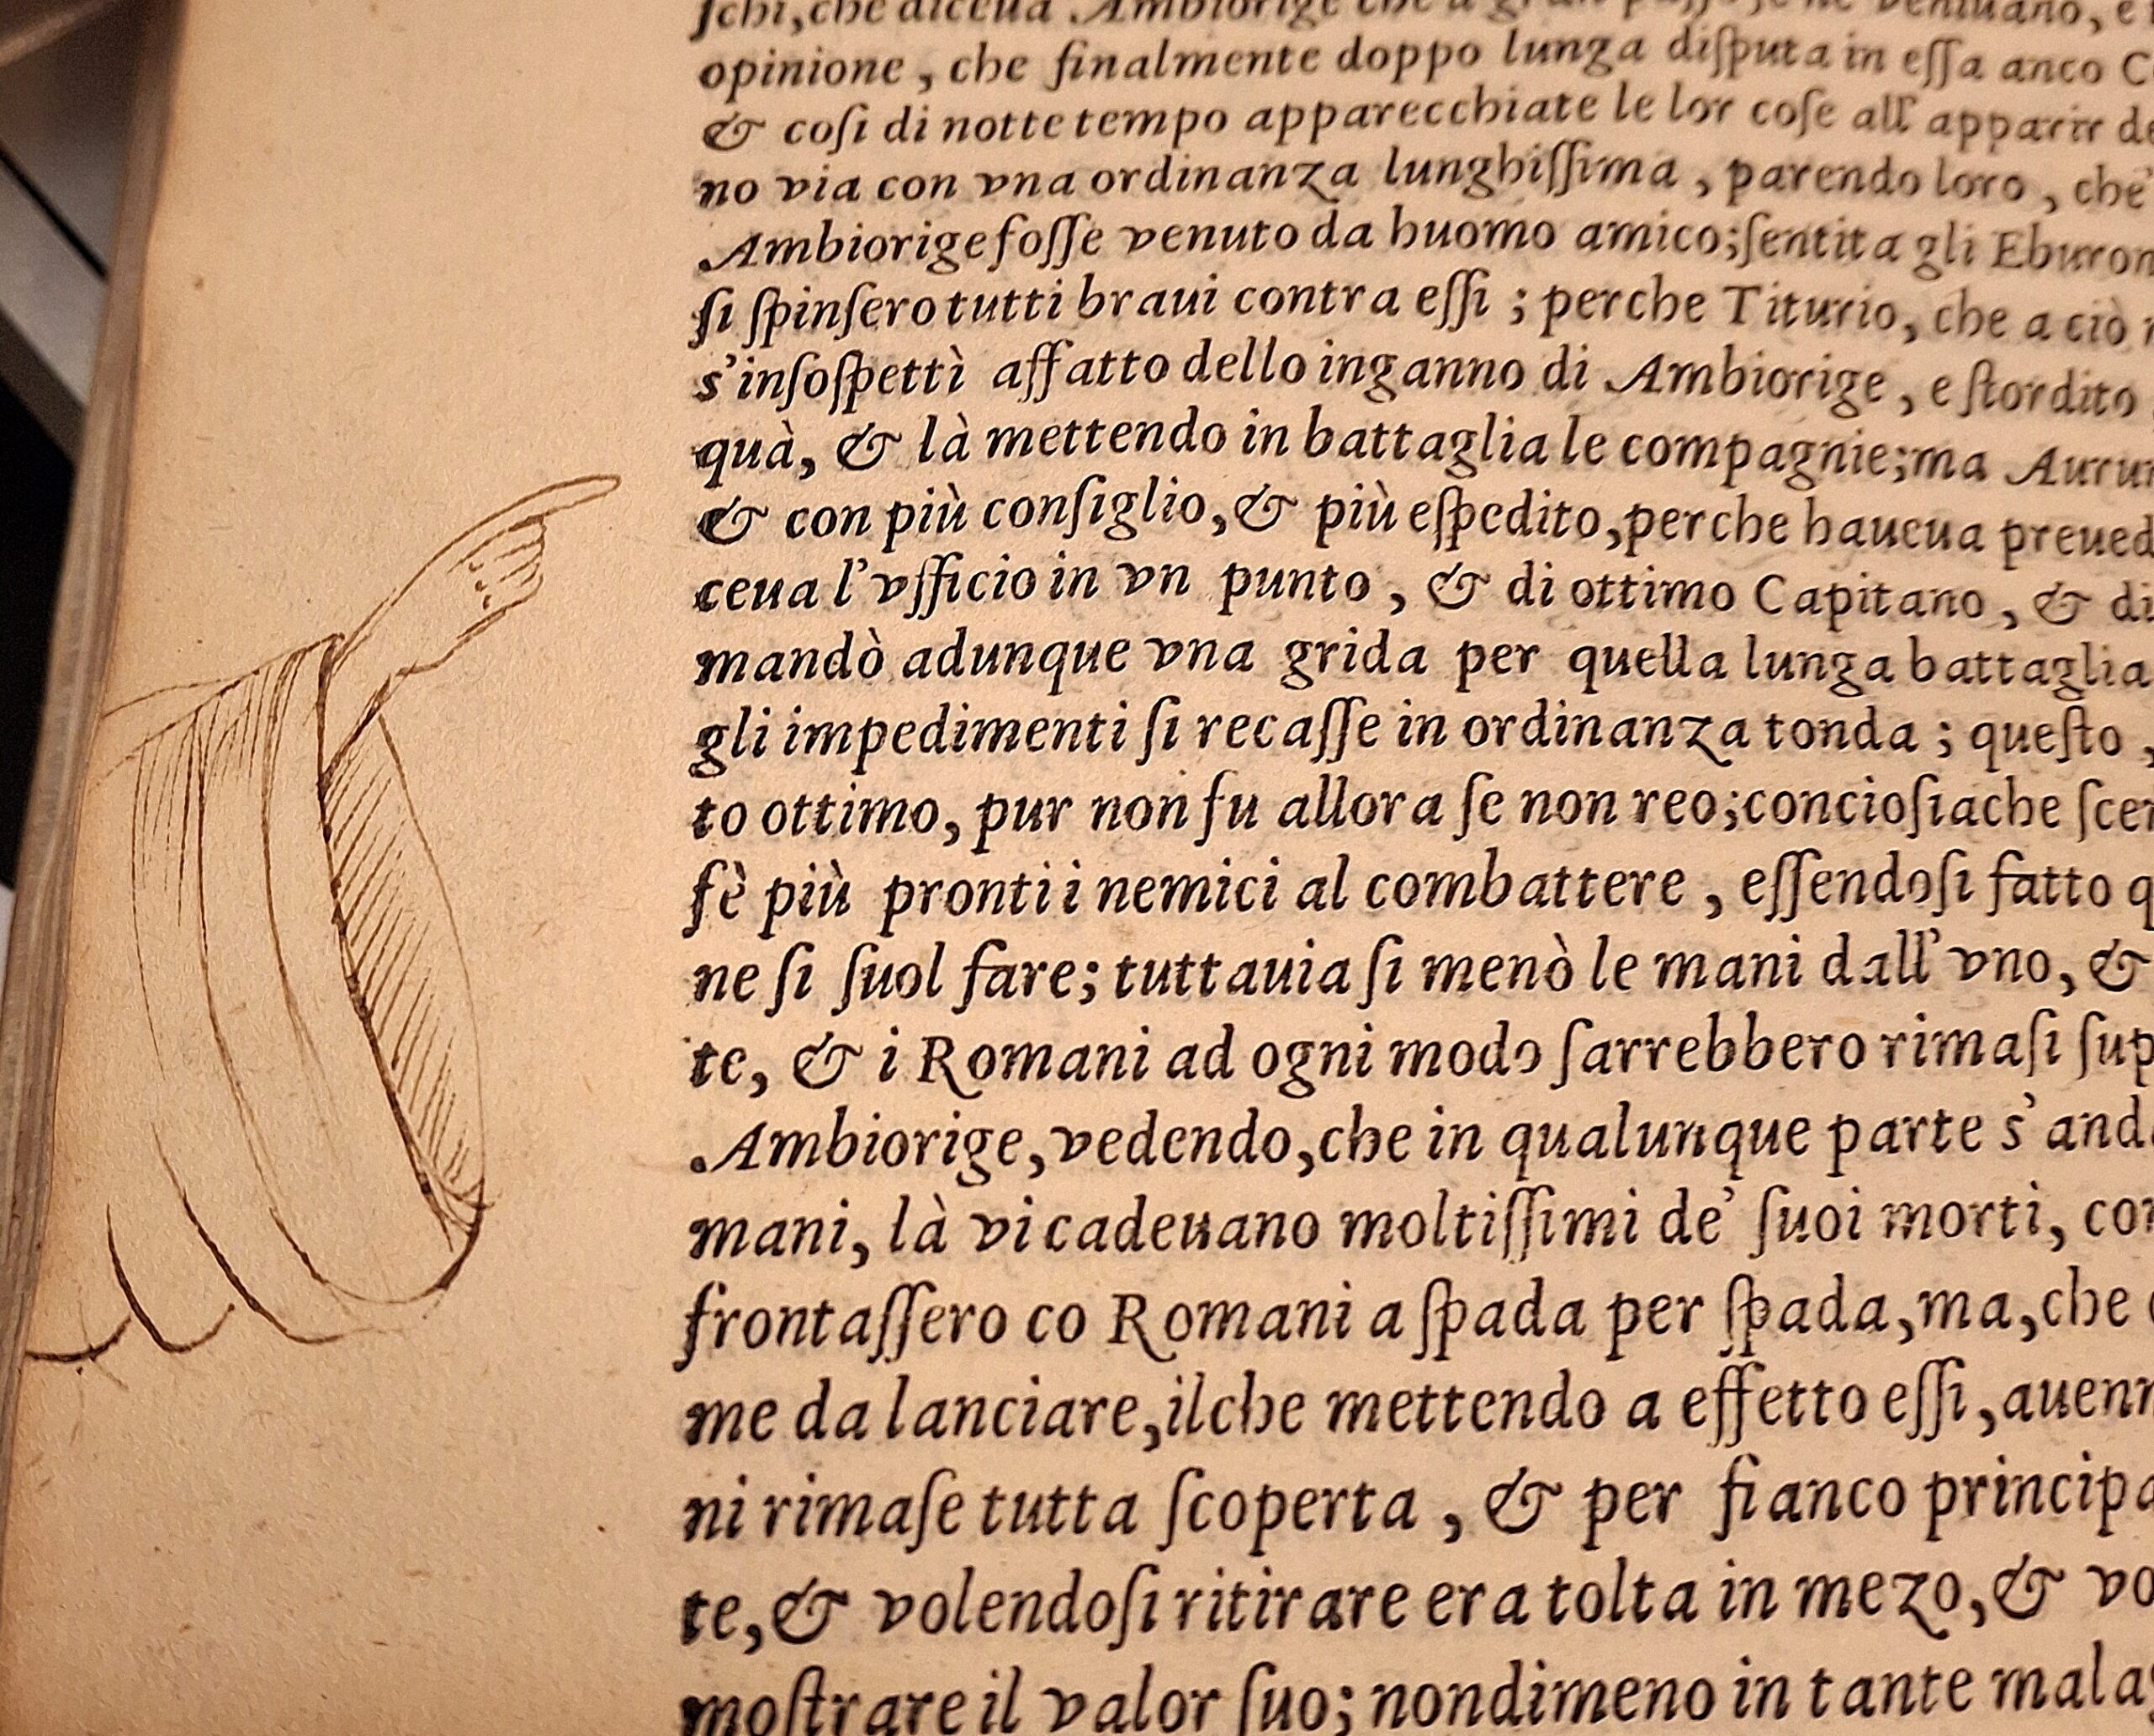 ſchi, che diceua Ambiorige che a gran paſſo ſe ne veniuano, e
opinione, che finalmente doppo lunga diſputa in eſſa anco
& coſi di notte tempo apparecchiate le lor coſe all' apparir
no via con vna ordinanza lunghiſſima, parendo loro, che
Ambiorige foſſe venuto da huomo amico; ſentita gli
ſi ſpinſero tutti braui contra eſſi; perche Titurio, che a ciò
s'inſoſpettì affatto dello inganno di Ambiorige, e ſtordito
quà, & là mettendo in battaglia le compagnie; ma
& con più conſiglio, & più eſpedito, perche haueua
ceua l'vfficio in vn punto, & di ottimo Capitano, & di
mandò adunque vna grida per quella lunga battaglia
gli impedimenti ſi recaſſe in ordinanza tonda; queſto,
to ottimo, pur non fu allora ſe non reo; concioſiache
fè più pronti i nemici al combattere, eſſendoſi fatto q
ne ſi ſuol fare; tuttauia ſi menò le mani dall'vno, &
te, & i Romani ad ogni modo ſarrebbero rimaſi ſup
Ambiorige, vedendo, che in qualunque parte s'and
mani, là vi cadeuano moltiſſimi de' ſuoi morti, con
frontaſſero co Romani a ſpada per ſpada, ma, che
me da lanciare, ilche mettendo a effetto eſſi, auenn
ni rimaſe tutta ſcoperta, & per fianco principa
te, & volendoſi ritirare era tolta in mezo, & vo
moſtrare il valor ſuo; nondimeno in tante mala